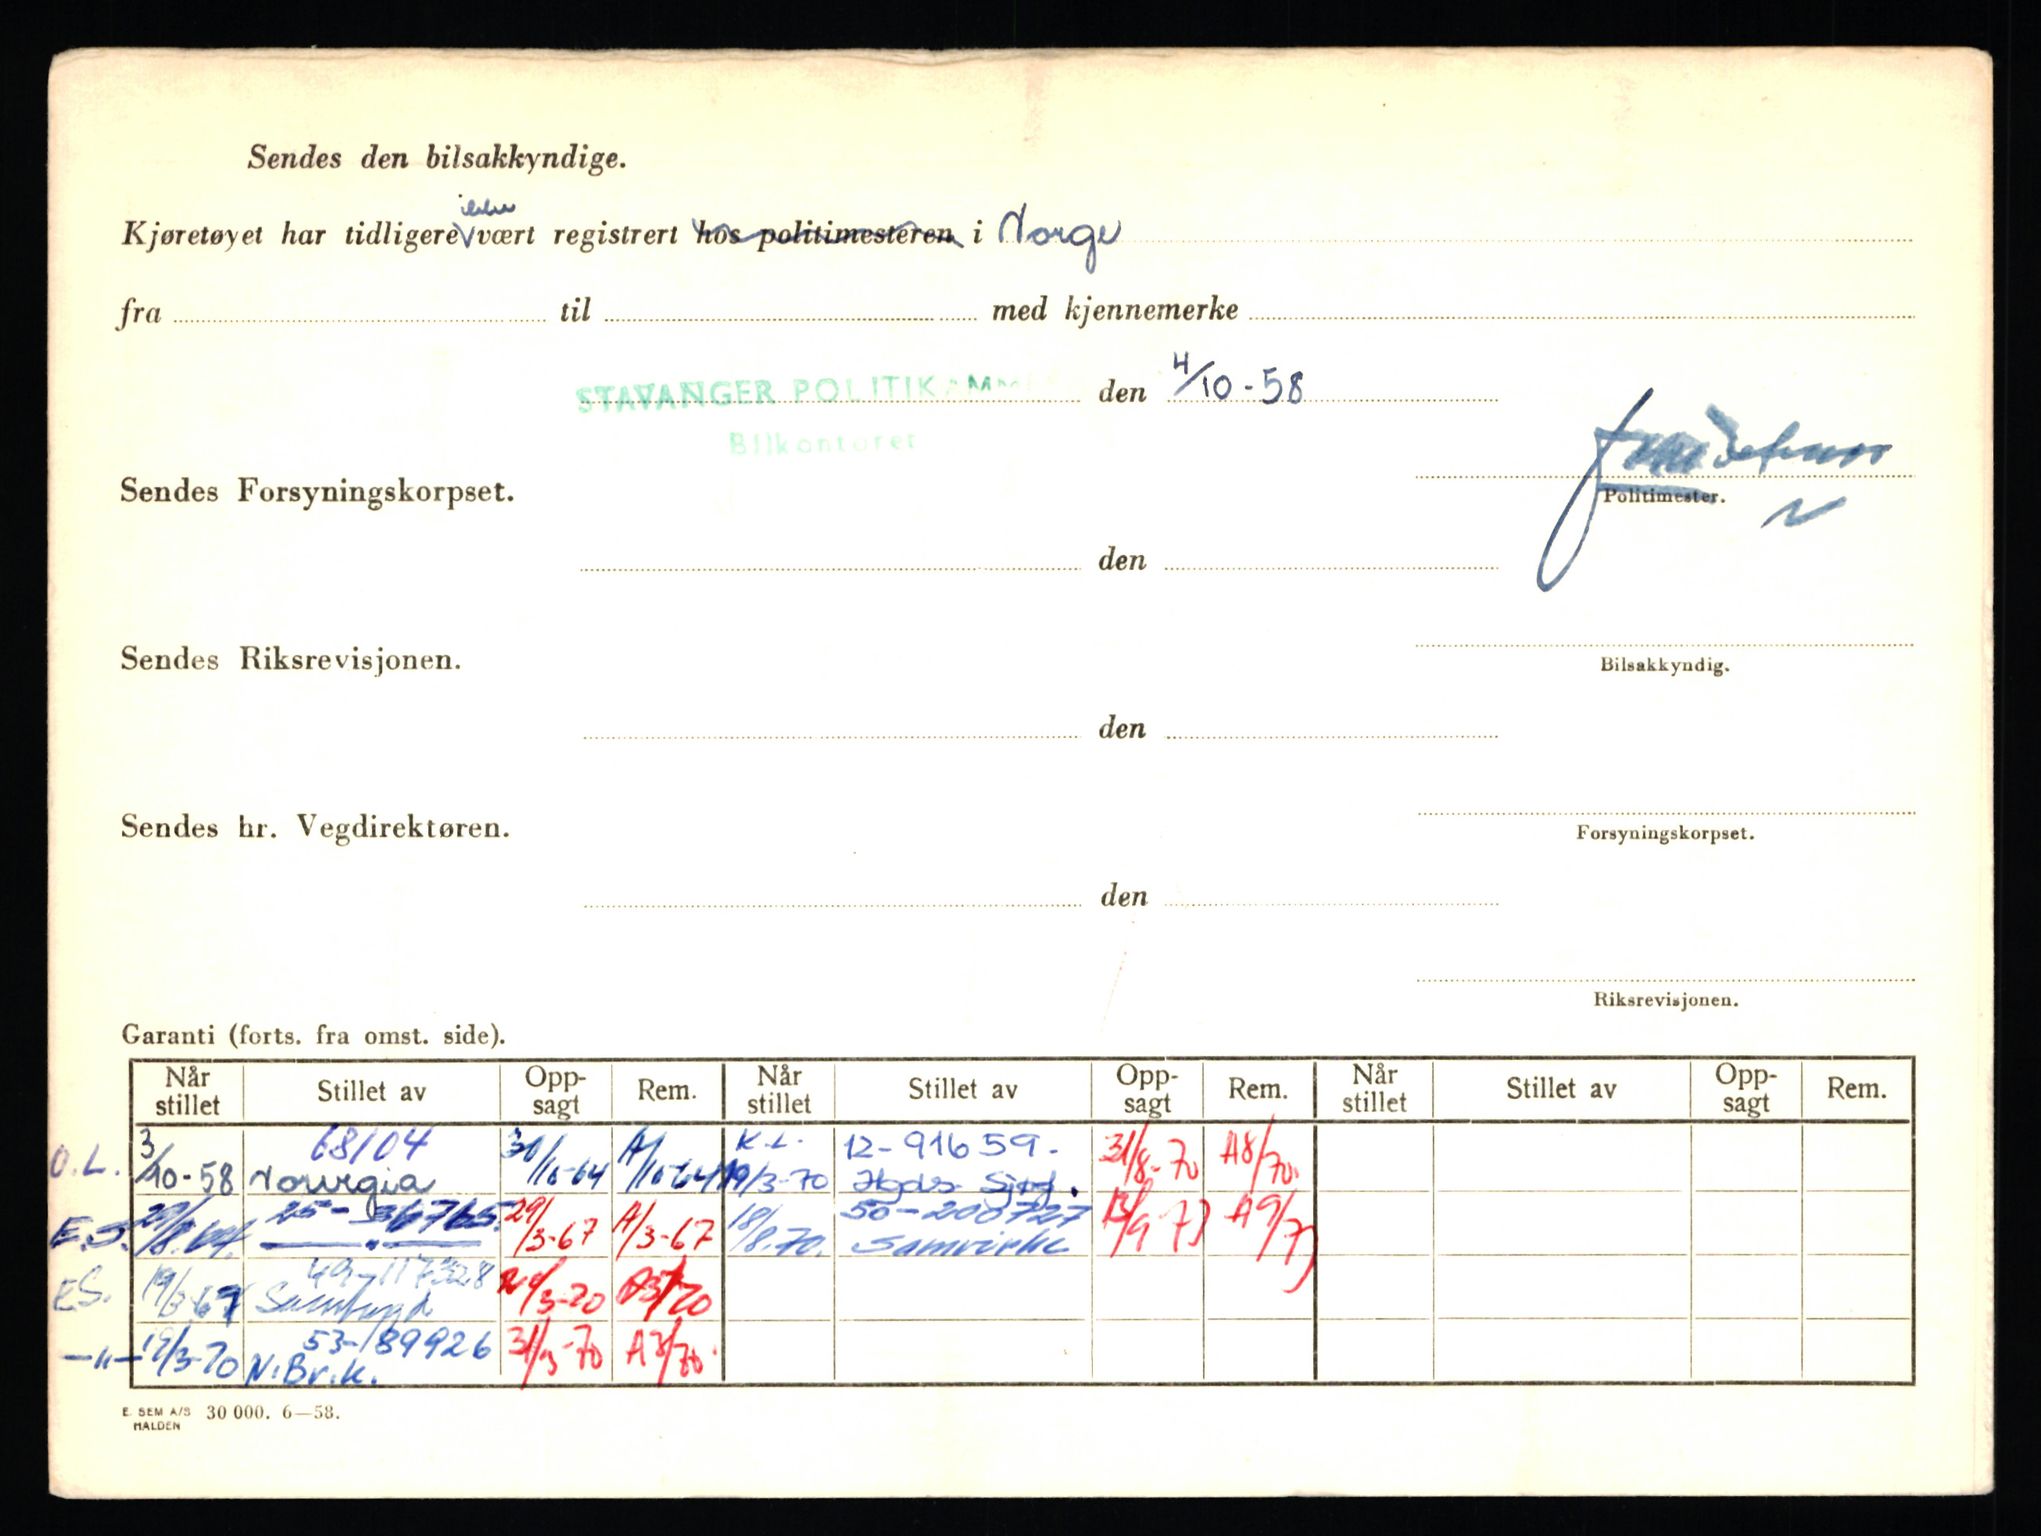 Sendes den bilsakkyndige.
ikke
Kjøretøyet har tidligere vært registrert hos politimesteren i Norge
fra til med kjennemerke
STAVANGER POLITIKAMM den 4/10-58
Bilkontoret
Sendes Forsyningskorpset.
Politimester.
den
Sendes Riksrevisjonen.
Bilsakkyndig.
den
Sendes hr. Vegdirektøren.
Forsyningskorpset.
den
Riksrevisjonen.
Garanti (forts. fra omst. side).
Når stillet Stillet av Opp-sagt Rem. Når stillet Stillet av Opp-sagt Rem. Når stillet Stillet av Opp-sagt Rem.
O.L. 3/10-58 68104 Norvegia 30/10-64 A/10-64 K.L. 19/3-70 12-91659. 31/8-70 A8/70.
E.S. 25-36765. 29/3-67 A/3-67 18/8.70. 50-200727 Samvirke A9/7
E.S. 19/3.67 49-117328 Samtrygd /3-70 A3/70
-"- 19/3-70 53-189926 N.Br.K. 31/3-70 A3/70.
E. SEM A/S HALDEN 30 000. 6—58.